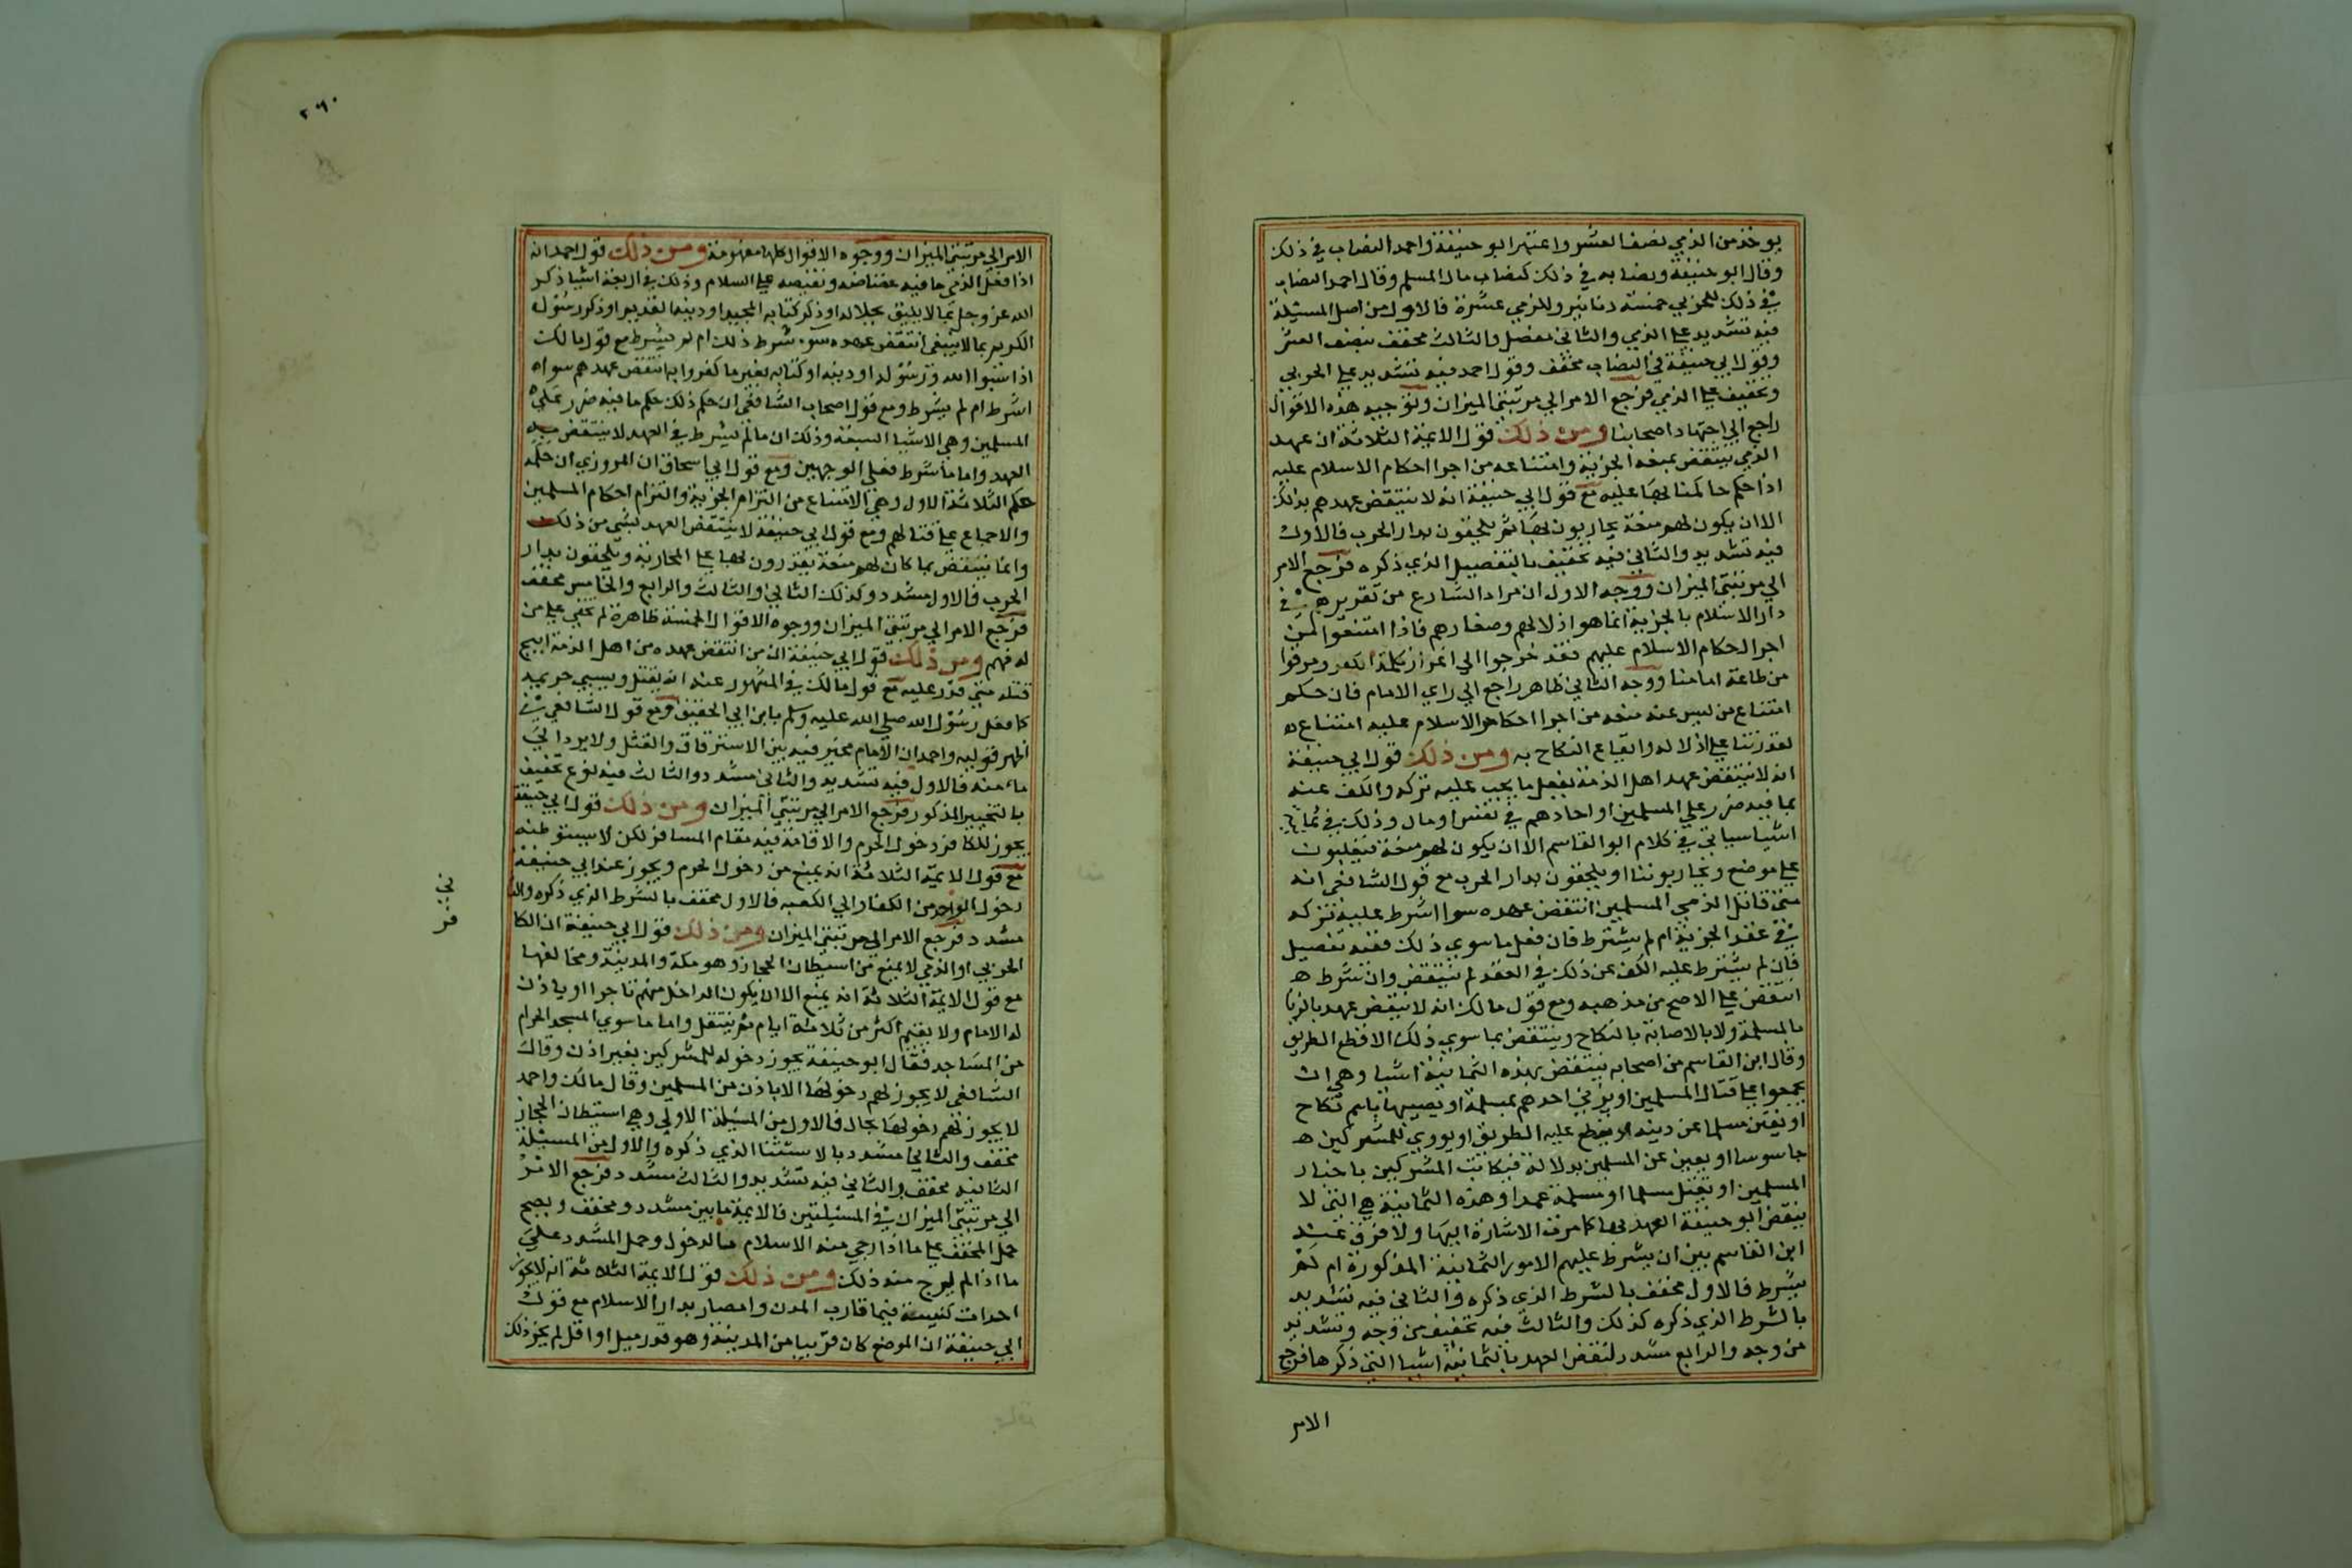 يوخذ من الذمي نصف العشر واعتبر ابو حنيفة واحمد النصاب في ذلك
وقال ابو حنيفة ونصابه في ذلك كنصاب مال المسلم وقال احمد النصاب
في ذلك للحربي خمسة دنانير وللذمي عشرة فالاول من اصل المسئلة
فيه تشديد علي الذمي والثاني مفصل والثالث مخفف بنصف العشر
وقول ابي حنيفة في النصاب مخفف وقول احمد فيه تشديد علي الحربي
وتخفيف علي الذمي فرجع الامر الي مرتبتي الميزان وتوجيه هذه الاقوال
راجع الي اجتهاد اصحابنا ومن ذلك قول الايمة الثلاثة ان عهد
الذمي ينتقض بمنعه الجزية وامتناعه من اجرا احكام الاسلام عليه
اذا حكم حاكمنا بها عليه مع قول ابي حنيفة انه لا ينتقض عهدهم بذلك
الا ان يكون لهم منعة يحاربون بها ثم يلحقون بدار الحرب فالاول
فيه تشديد والثاني فيه تخفيف بالتفصيل الذي ذكره فرجع الامر
الي مرتبتي الميزان ووجه الاول ان مراد الشارع من تقريرهم في
دار الاسلام بالجزية انما هو اذلالهم وصغارهم فاذا امتنعوا من
اجرا احكام الاسلام عليهم فقد خرجوا الي اعزاز كلمة الكفر ومرقوا
من طاعة امامنا ووجه الثاني ظاهر راجع الي راي الامام فان حكم
امتناع من ليس عنده منعه من اجرا احكام الاسلام عليه امتناعه
لقدرتنا علي اذلاله وايقاع النكاح به ومن ذلك قول ابي حنيفة
انه لا ينتقض عهد اهل الذمة بفعل ما يجب عليه تركه والكف عنه
بما فيه ضرر علي المسلمين او احادهم في نفس او مال وذلك في ثمانية
اشيا سياتي في كلام ابو القاسم الا ان يكون لهم منعة فيغلبون
علي موضع ويحاربوننا او يلحقون بدار الحرب مع قول الشافعي انه
متي قاتل الذمي المسلمين انتقض عهده سوا اشرط عليه تركه
في عقد الجزية ام لم يشترط فان فعل ما سوي ذلك ففيه تفصيل
فان لم يشترط عليه الكف عن ذلك في العقد لم ينتقض وان شرط
انتقض علي الاصح من مذهبه ومع قول مالك انه لا ينتقض عهد بالزنا
بالمسلمة ولا بالاصابة بالنكاح وينتقض بما سوي ذلك الا قطع الطريق
وقال ابن القاسم من اصحابه ينتقض بهذه الثمانية اشيا وهي ان
يجمعوا علي قتال المسلمين او يزني احدهم بمسلمة او يصيبها باسم نكاح
او يفتن مسلما عن دينه او يقطع عليه الطريق او يووي للمشركين
جاسوسا او يعين عن المسلمين بدلالة فيكاتب المشركين باخبار
المسلمين او يقتل مسلما او مسلمة عمدا وهذه الثمانية هي التي لا
ينقض ابو حنيفة العهد بها كما مرت الاشارة اليها ولا فرق عند
ابن القاسم بين ان يشرط عليهم الامور الثمانية المذكورة ام لم
يشرط فالاول مخفف بالشرط الذي ذكره والثاني فيه تشديد
بالشرط الذي ذكره كذلك والثالث فيه تخفيف من وجه وتشديد
من وجه والرابع مشدد لنقض العهد بالثمانية اشيا التي ذكرها فرجع
الامر
٢٦٠
الامر الي مرتبتي الميزان ووجوه الاقوال كلها مفهومة ومن ذلك قول احمد انه
اذا فعل الذمي ما فيه غضاضة ونقيصه علي السلام وذلك في اربعة اشيا ذكر
الله عز وجل بما لا يليق بجلاله او ذكر كتابه المجيد او دينه القديم او ذكر رسوله
الكريم بما لا ينبغي انتقض عهده سوء شرط ذلك ام لم يشرط مع قول مالك
اذا سبوا الله ورسوله او دينه او كتابه بغير ما كفروا به انتقض عهدهم سواه
اشرط ام لم يشرط ومع قول اصحاب الشافعي ان حكم ذلك حكم ما فيه ضرر علي
المسلمين وهي الاشيا السبعة وذلك ان ما لم يشرط في العهد لا ينتقض به
العهد واما ما شرط فعلي الوجهين ومع قول ابي اسحاق ان المروزي ان حكمه
حكم الثلاثة الاول وهي الامتناع من التزام الجزية والتزام احكام المسلمين
والاجماع علي قتالهم ومع قول ابي حنيفة لا ينتقض العهد بشي من ذلك
وانما ينتقض بما كان لهم منعة يقدرون بها علي المحاربة ويلحقون بدار
الحرب فالاول مشدد وكذلك الثاني والثالث والرابع والخامس مخفف
فرجع الامر الي مرتبتي الميزان ووجوه الاقوال الخمسة ظاهرة لم تخفي علي من
له فهم ومن ذلك قول ابي حنيفة ان من انتقض عهده من اهل الذمة ابيح
قتله متي قدر عليه مع قول مالك في المشهور عنه انه يقتل ويسبي حريمه
كما فعل رسول الله صلي الله عليه وسلم بابن ابي الحقيق ومع قول الشافعي في
اظهر قوليه واحمد ان الامام مخير فيه بين الاسترقاق والقتل ولا يرد الي
مامنه فالاول فيه تشديد والثاني مشدد والثالث فيه نوع تخفيف
بالتخيير المذكور فرجع الامر الي مرتبتي الميزان ومن ذلك قول ابي حنيفة
يجوز للكافر دخول الحرم والاقامة فيه مقام المسافر لكن لا يستوطنه
مع قول الايمة الثلاثة انه يمنع من دخول الحرم ويجوز عند ابي حنيفة
دخول الواحد من الكفار الي الكعبه فالاول مخفف بالشرط الذي ذكره والثا
ني
مشدد فرجع الامر الي مرتبتي الميزان ومن ذلك قول ابي حنيفة ان الكا
فر
الحربي او الذمي لا يمنع من استيطان الحجاز وهو مكة والمدينة ومخالفها
مع قول الايمة الثلاثة انه يمنع الا ان يكون الداخل منهم تاجرا او ياذن
له الامام ولا يقيم اكثر من ثلاثة ايام ثم ينتقل واما ما سوي المسجد الحرام
من المساجد فقال ابو حنيفة يجوز دخوله للمشركين بغير اذن وقال
الشافعي لا يجوز لهم دخولها الا باذن من المسلمين وقال مالك واحمد
لا يجوز لهم دخولها بحال فالاول من المسئلة الاولي وهي استيطان الحجاز
مخفف والثاني مشدد بالاستثنا الذي ذكره والاول من المسئلة
الثانيه مخفف والثاني فيه تشديد والثالث مشدد فرجع الامر
الي مرتبتي الميزان في المسئلتين فالايمة ما بين مشدد ومخفف ويصح
حمل المخفف علي ما اذا رجي منه الاسلام بالدخول وحمل المشدد علي
ما اذا لم يرج منه ذلك ومن ذلك قول الايمة الثلاثة انه لا يجوز
احداث كنيسة فيما قارب المدن وامصار بدار الاسلام مع قول
ابي حنيفة ان الموضع كان قريبا من المدينة وهو قدر ميل او اقل لم يجز ذلك